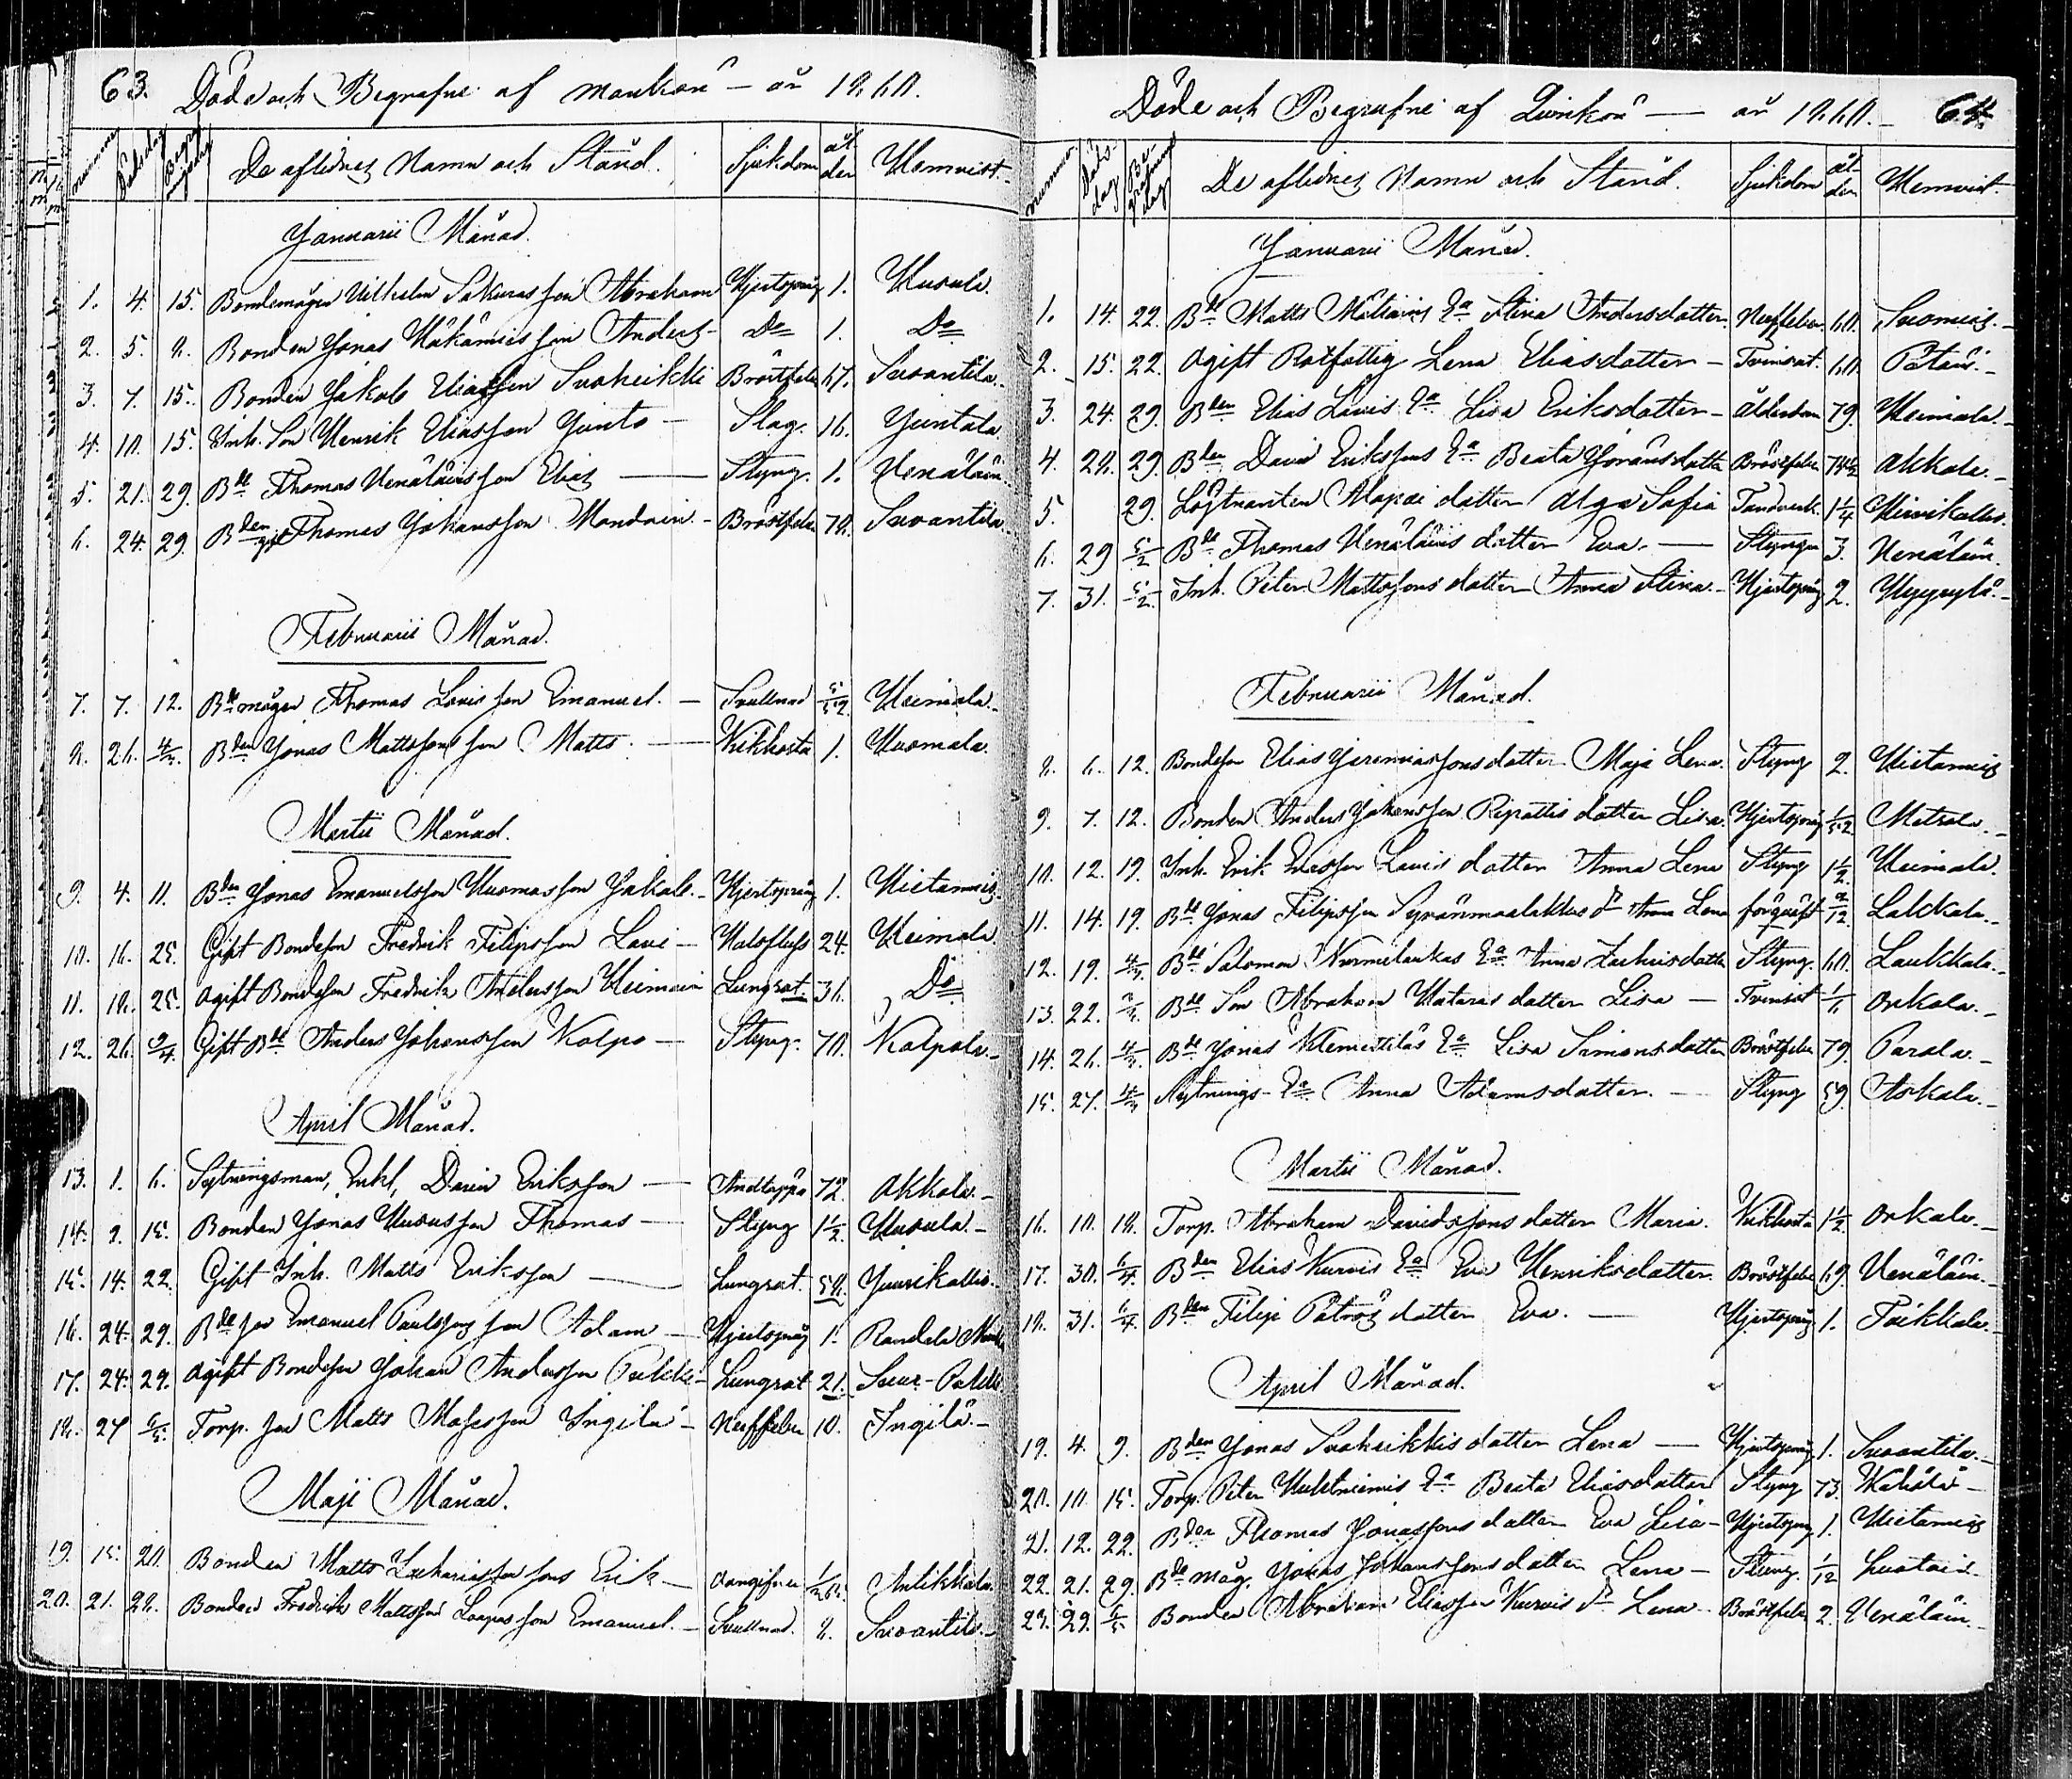 63. Döde och Begrafne af mankön – år 1860.
nummer Dödsdag Begrafningsdag De aflidnes Namn och Stånd. Sjukdom ålder Hemvist.
Januarii Månad.
1. 4. 15. Bondemågen Vilhelm son Abraham Hjertsprång 1. Uusula.
2. 5. 8. Bonden Jonas Näkämies son Anders – Do 1. Do
3. 7. 15. Bonden Jakob Eliasson Svoheikki Bröstfeber 67. Suoantila.
4. 10. 15. Inh. Son Henrik Eliasson Junto – Slag. 16. Juntala
5. 21. 29. Bde Thomas Venäläinis son Elias — Styng. 1. Venäläin.
6. 24. 29. Bden Thomas Johansson Mondoin. – Bröstfeber 78. Suoantila
Februarii Månad.
7. 7. 12. Bde mågen Thomas Lavis son Emanuel. – Svullnad 5/52 Heimala.
8. 26. 4/3 Bden Jonas Mattssons son Matts. — Kikhosta 1. Uusmala.
Martii Månad.
9. 4. 11. Bden Jonas Emanuelsson son Jakob. – Hjertsprång 1. Hietamies.
10. 16. 25. Gift Bondeson Fredrik Filipsson Lavi – Halsfluss 24. Heimala
11. 18. 25. Ogift Bondeson Fredrik Andersson Heimoin Lungsot. 36. Do
12. 26. 2/4 Gift Bde Anders Johansson Kolpo – Styng. 70. Kolpola. –
April Månad.
13. 1. 6. Sytningsman, Enkl, David Eriksson — Andtäppa 72. Akkala. –
14. 2. 15. Bonden Jonas Uususson Thomas – Styng 1 1/2. Uusula. –
15. 14. 22. Gift Inh. Matts Eriksson — Lungsot. 58. Juurikallio.
16. 24. 29. Bde son Emanuel Paulssons son Adam – Hjertsprång 1. Randala
17. 24. 29. Ogift Bondeson Johan Andersson Pukki – Lungsot 21. Suur-Pakki
18. 27 6/5. Torp. son Matts Matsson Ingilä – Nerffeber 10. Ingilä. –
Maji Månad.
19. 15. 20. Bonden Matts Zachariasson sons Erik – oangifven Anttikkala
20. 21. 28. Bonden Fredrik Mattsson son Emanuel. – Svullnad. 8. Suoantila. –
Döde och Begrafne af Qvinkön — år 1860. – 64.
nummer Dödsdag Begrafningsdag De aflidnes Namn och Stånd. Sjukdom ålder Hemvist.
Januarii Månad.
1. 14. 22. Bde Matts Mätiäinis Ea Stina Andersdotter. Nerffeber 60. Suomies. –
2. 15. 22. Ogift Rotfattig Lena Eliasdotter – Tvinsot. 60. Pätäis. –
3. 24. 29. Bden Elias Lavis Ea Lisa Eriksdotter – Ålderdom 79. Heimala. –
4. 28. 29. Bden David Erikssons Ea Beata Göransdotter Bröstfeber 74 1/2 Akkala. –
5. 29. Löjtnanten dotter Olga Sofia Tandverk. 1 1/4 Hirvikallio.
6. 29 5/2 Bde Thomas Venäläinis dotter Eva. — Styngn 3. Venäläin.
7. 31. 5/2. Inh. Peter Mattssons dotter Anna Stina. – Hjertsprång 2. Hyypylä. –
Februarii Månad.
8. 6. 12. Bondeson Elias Jeremiassons dotter Maja Lena. Styng 2. Hietamies
9. 7. 12. Bonden Anders Johansson Ripattis dotter Lisa. Hjertsprång 1/52 Metsola. –
10. 12. 19. Inh. Erik Eliasson Lavis dotter Anna Lena Styng 1 1/2. Heimala.
11. 14. 19. Bde Jonas Filipsson dr Anna Lena förqväft 2/12. Lakkala. –
12. 19. 4/3. Bde Salomon Nurmilaukas Ea Anna Zachrisdotter Styng. 60. Laukkala. –
13. 22. Bde Son Abraham dotter Lisa – Tvinsot Orkola. –
14. 26. 4/3. Bde Jonas Klemettiläs Ea Lisa Simonsdotter Bröstfeber 79. Parola. –
15. 27. 4/3 Sytnings-Ea Anna Adamsdotter. — Styng 59. Askola. –
Martii Månad.
16. 10. 18. Torp. Abraham Davidssons dotter Maria. Kikhosta 1 1/2 Orkola. –
17. 30. 6/4. Bden Elias Kurvis Ea Eva Henriksdotter. Bröstfeber 69. Venäläin. –
18. 31. 6/4. Bden Filip dotter Eva. — Hjertsprång 1. Toikkala. –
April Månad.
19. 4. 9. Bden Jonas Svoheikkis dotter Lena — Hjertsprång 1. Suoantila. –
20. 10. 15. Torp. Peter Huhtniemis Ea Beata Eliasdotter Styng 73.
21. 12. 22. Bden Thomas Jonassons dotter Eva Lisa – Hjertsprång 1. Hietamies
22. 21. 29. Bde måg. Jonas Johanssons dotter Lena – Styng. 1/12
23. 29. 6/5 Bonden Abraham Eliasson Kurvis dr Lena. Bröstfeber 2. Venäläin. –